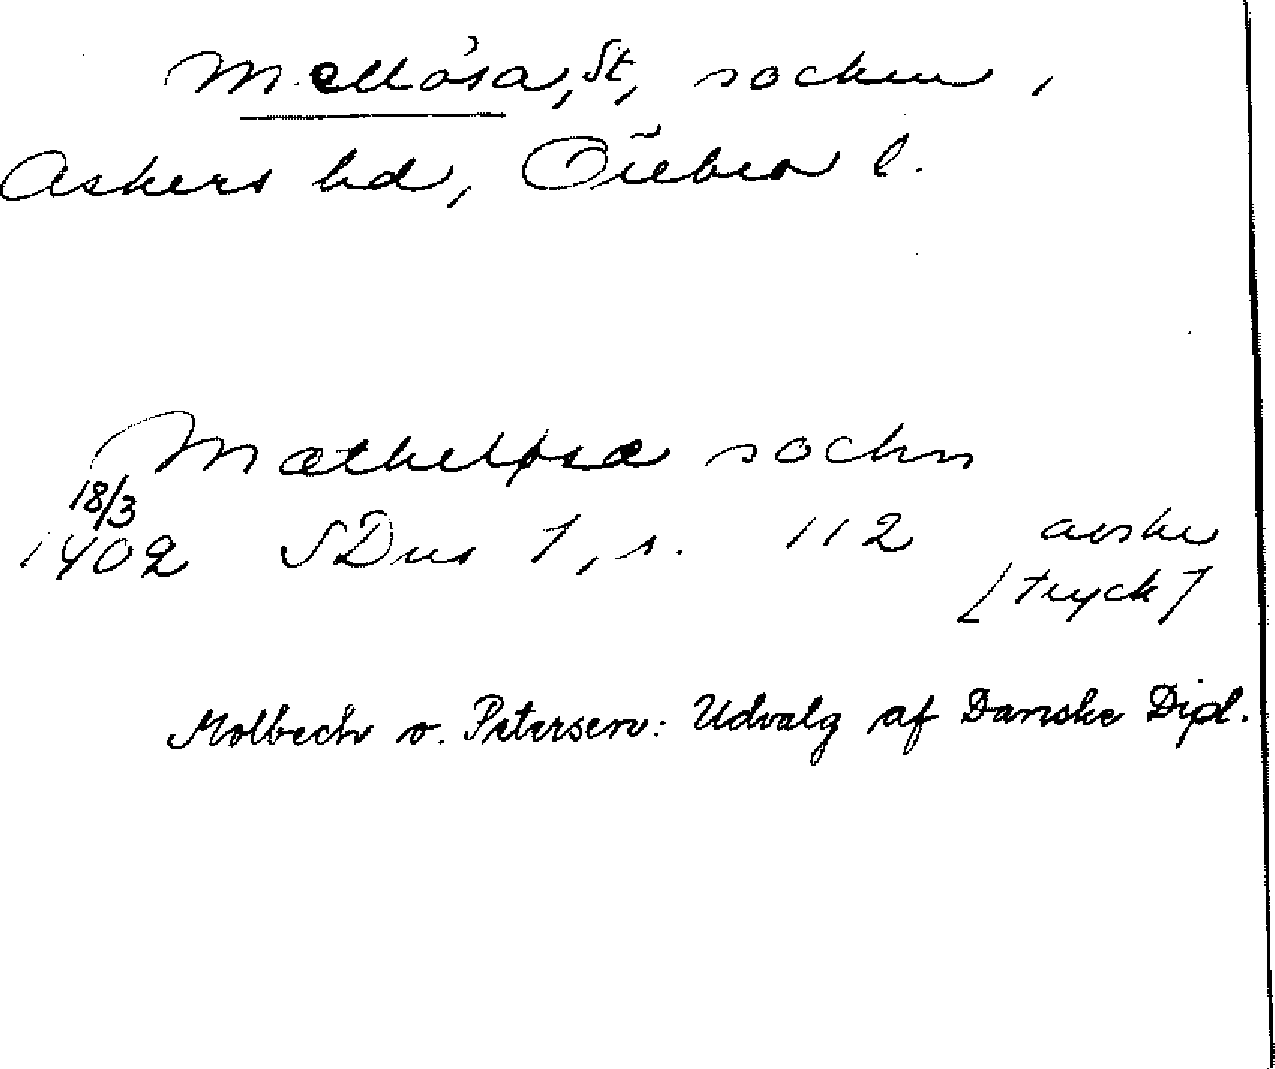 Mellösa, St, socken,
Askers hd, Örebro l.
Mætheløsæ sockn
18/3
1402 SDns 1, s. 112 avskr
[tryck]
Molbech o. Petersen: Udvalg af Danske Dipl.